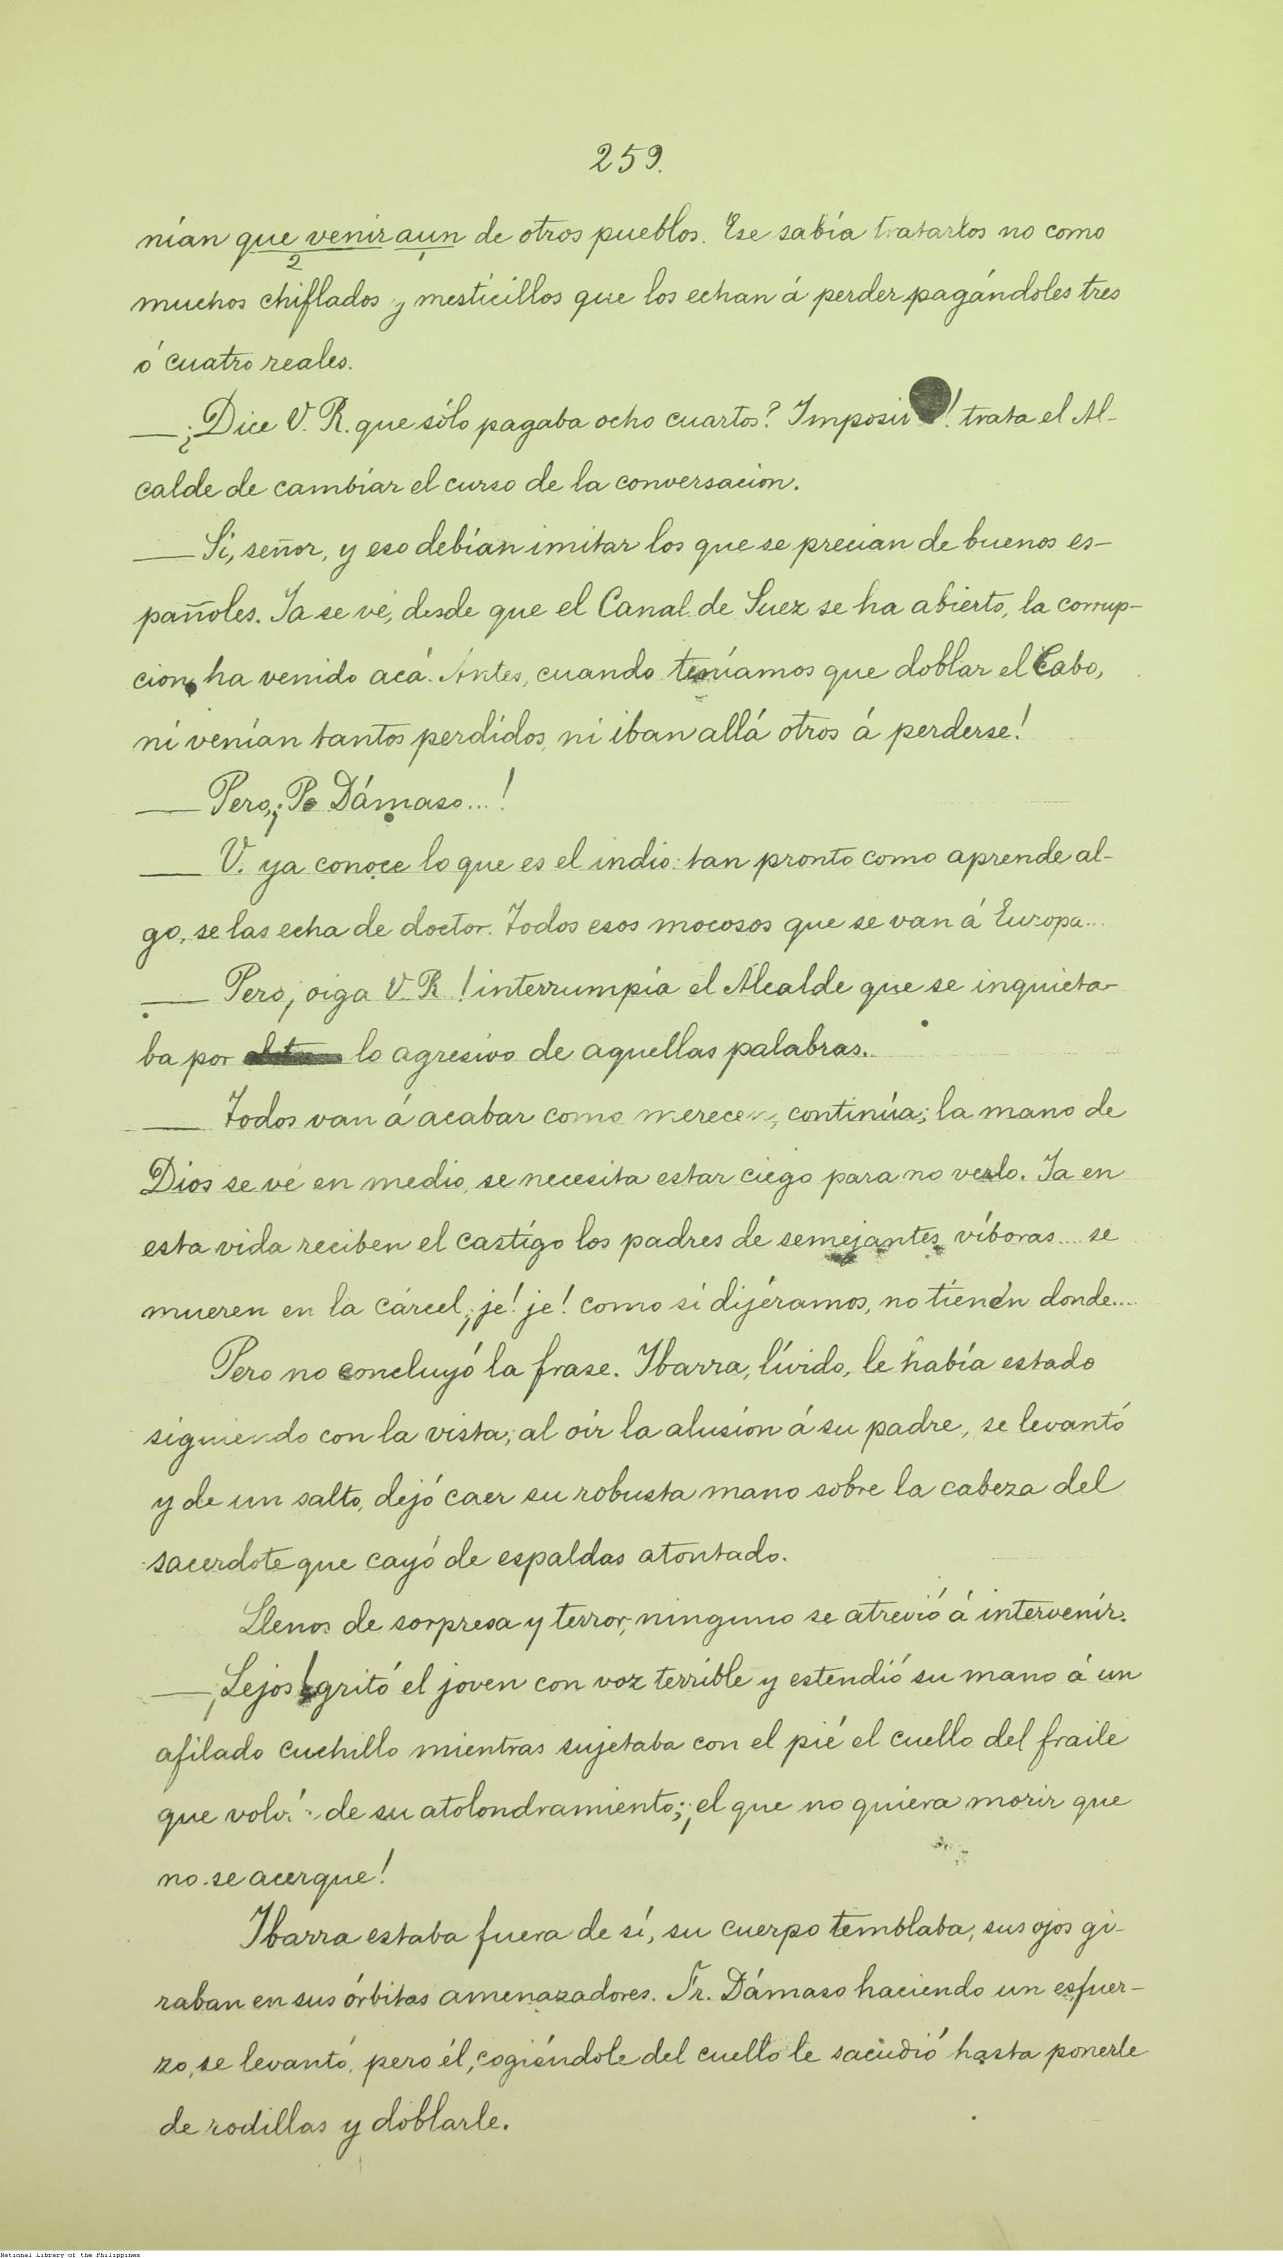 259.
nían que venir aun de otros pueblos. Ese sabía tratarlos no como
2 1
muchos chiflados y mesticillos que los echan á perder pagándoles tres
ó cuatro reales.
—¿Dice V. R. que sólo pagaba ocho cuartos? ! trata el Al-
calde de cambiar el curso de la conversacion.
— Si, señor, y eso debían imitar los que se precian de buenos es-
pañoles. Ya se vé, desde que el Canal de Suez se ha abierto, la corrup-
cion ha venido acá. Antes, cuando teníamos que doblar el Cabo,
ni venían tantos perdidos, ni iban allá otros á perderse!
— Pero, ¡P. Dámaso...!
— V. ya conoce lo que es el indio: tan pronto como aprende al-
go, se las echa de doctor. Todos esos mocosos que se van á Europa...
— Pero, ¡oiga V. R.! interrumpía el Alcalde que se inquieta-
ba por lo agresivo de aquellas palabras.
— Todos van á acabar como merecen, continúa; la mano de
Dios se vé en medio, se necesita estar ciego para no verlo. Ya en
esta vida reciben el castigo los padres de semejantes víboras.... se
mueren en la cárcel, ¡je! je! como si dijéramos, no tienen donde....
Pero no concluyó la frase. Ibarra, lívido, le había estado
siguiendo con la vista; al oir la alusion á su padre, se levantó
y de un salto, dejó caer su robusta mano sobre la cabeza del
sacerdote que cayó de espaldas atontado.
Llenos de sorpresa y terror, ninguno se atrevió á intervenir.
—¡Lejos! gritó el joven con voz terrible y estendió su mano á un
afilado cuchillo mientras sujetaba con el pié el cuello del fraile
que de su atolondramiento; ¡el que no quiera morir que
no se acerque!
Ibarra estaba fuera de sí, su cuerpo temblaba, sus ojos gi-
raban en sus órbitas amenazadores. Fr. Dámaso haciendo un esfuer-
zo, se levantó, pero él, cogiéndole del cuello le sacudió hasta ponerle
de rodillas y doblarle.
National Library of the Philippines